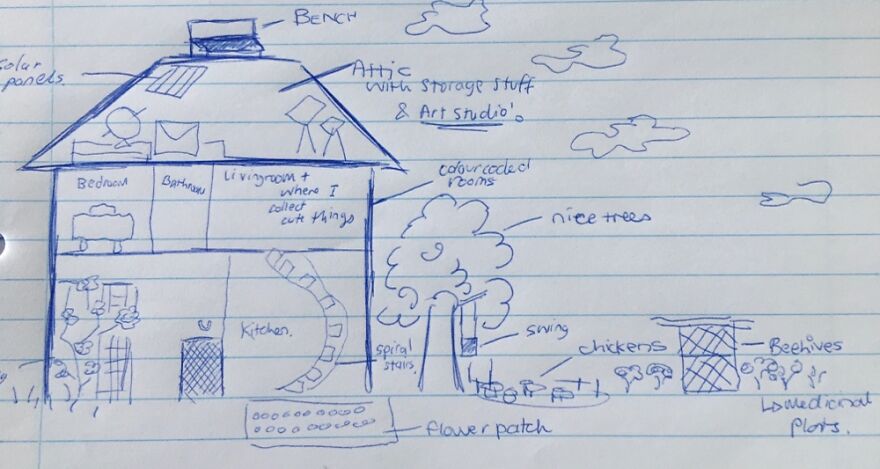 BENCH
Solar
panels.
Attic
with storage stuff
& Art studio.
Bedroom
Bathroom
Livingroom +
where I
collect
cute things
colourcoded
rooms
nice trees
Kitchen.
spiral
stairs
swing
chickens
Beehives
Medicinal
Plots.
flower patch